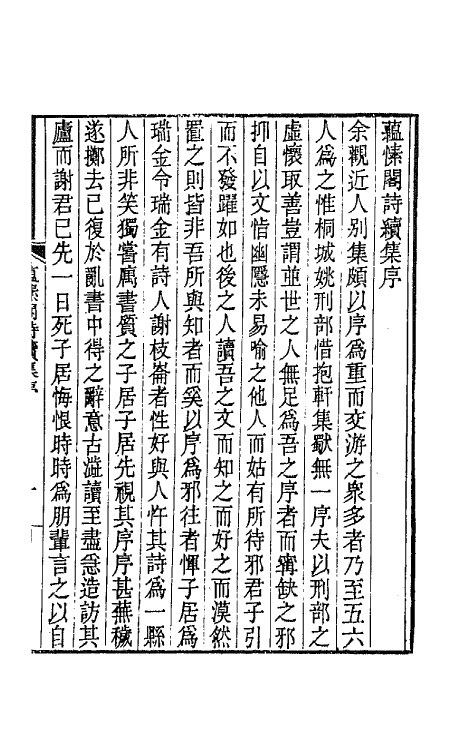 蘊愫閣詩續集序
余觀近人別集頗以序爲重而交游之衆多者乃至五六
人爲之惟桐城姚刑部惜抱軒集歘無一序夫以刑部之
虛懷取善豈謂並世之人無足爲吾之序者而寗缺之邪
抑自以文恉幽隱未易喻之他人而姑有所待邪君子引
而不發躍如也後之人讀吾之文而知之而好之而漠然
置之則皆非吾所與知者而奚以序爲邪往者惲子居爲
瑞金令瑞金有詩人謝枝崙者性好與人忤其詩爲一縣
人所非笑獨嘗寓書質之子居子居先視其序序甚蕪穢
遂擲去已復於亂書中得之辭意古澁讀至盡急造訪其
廬而謝君已先一日死子居悔恨時時爲朋輩言之以自
蘊愫閣詩續集序
一